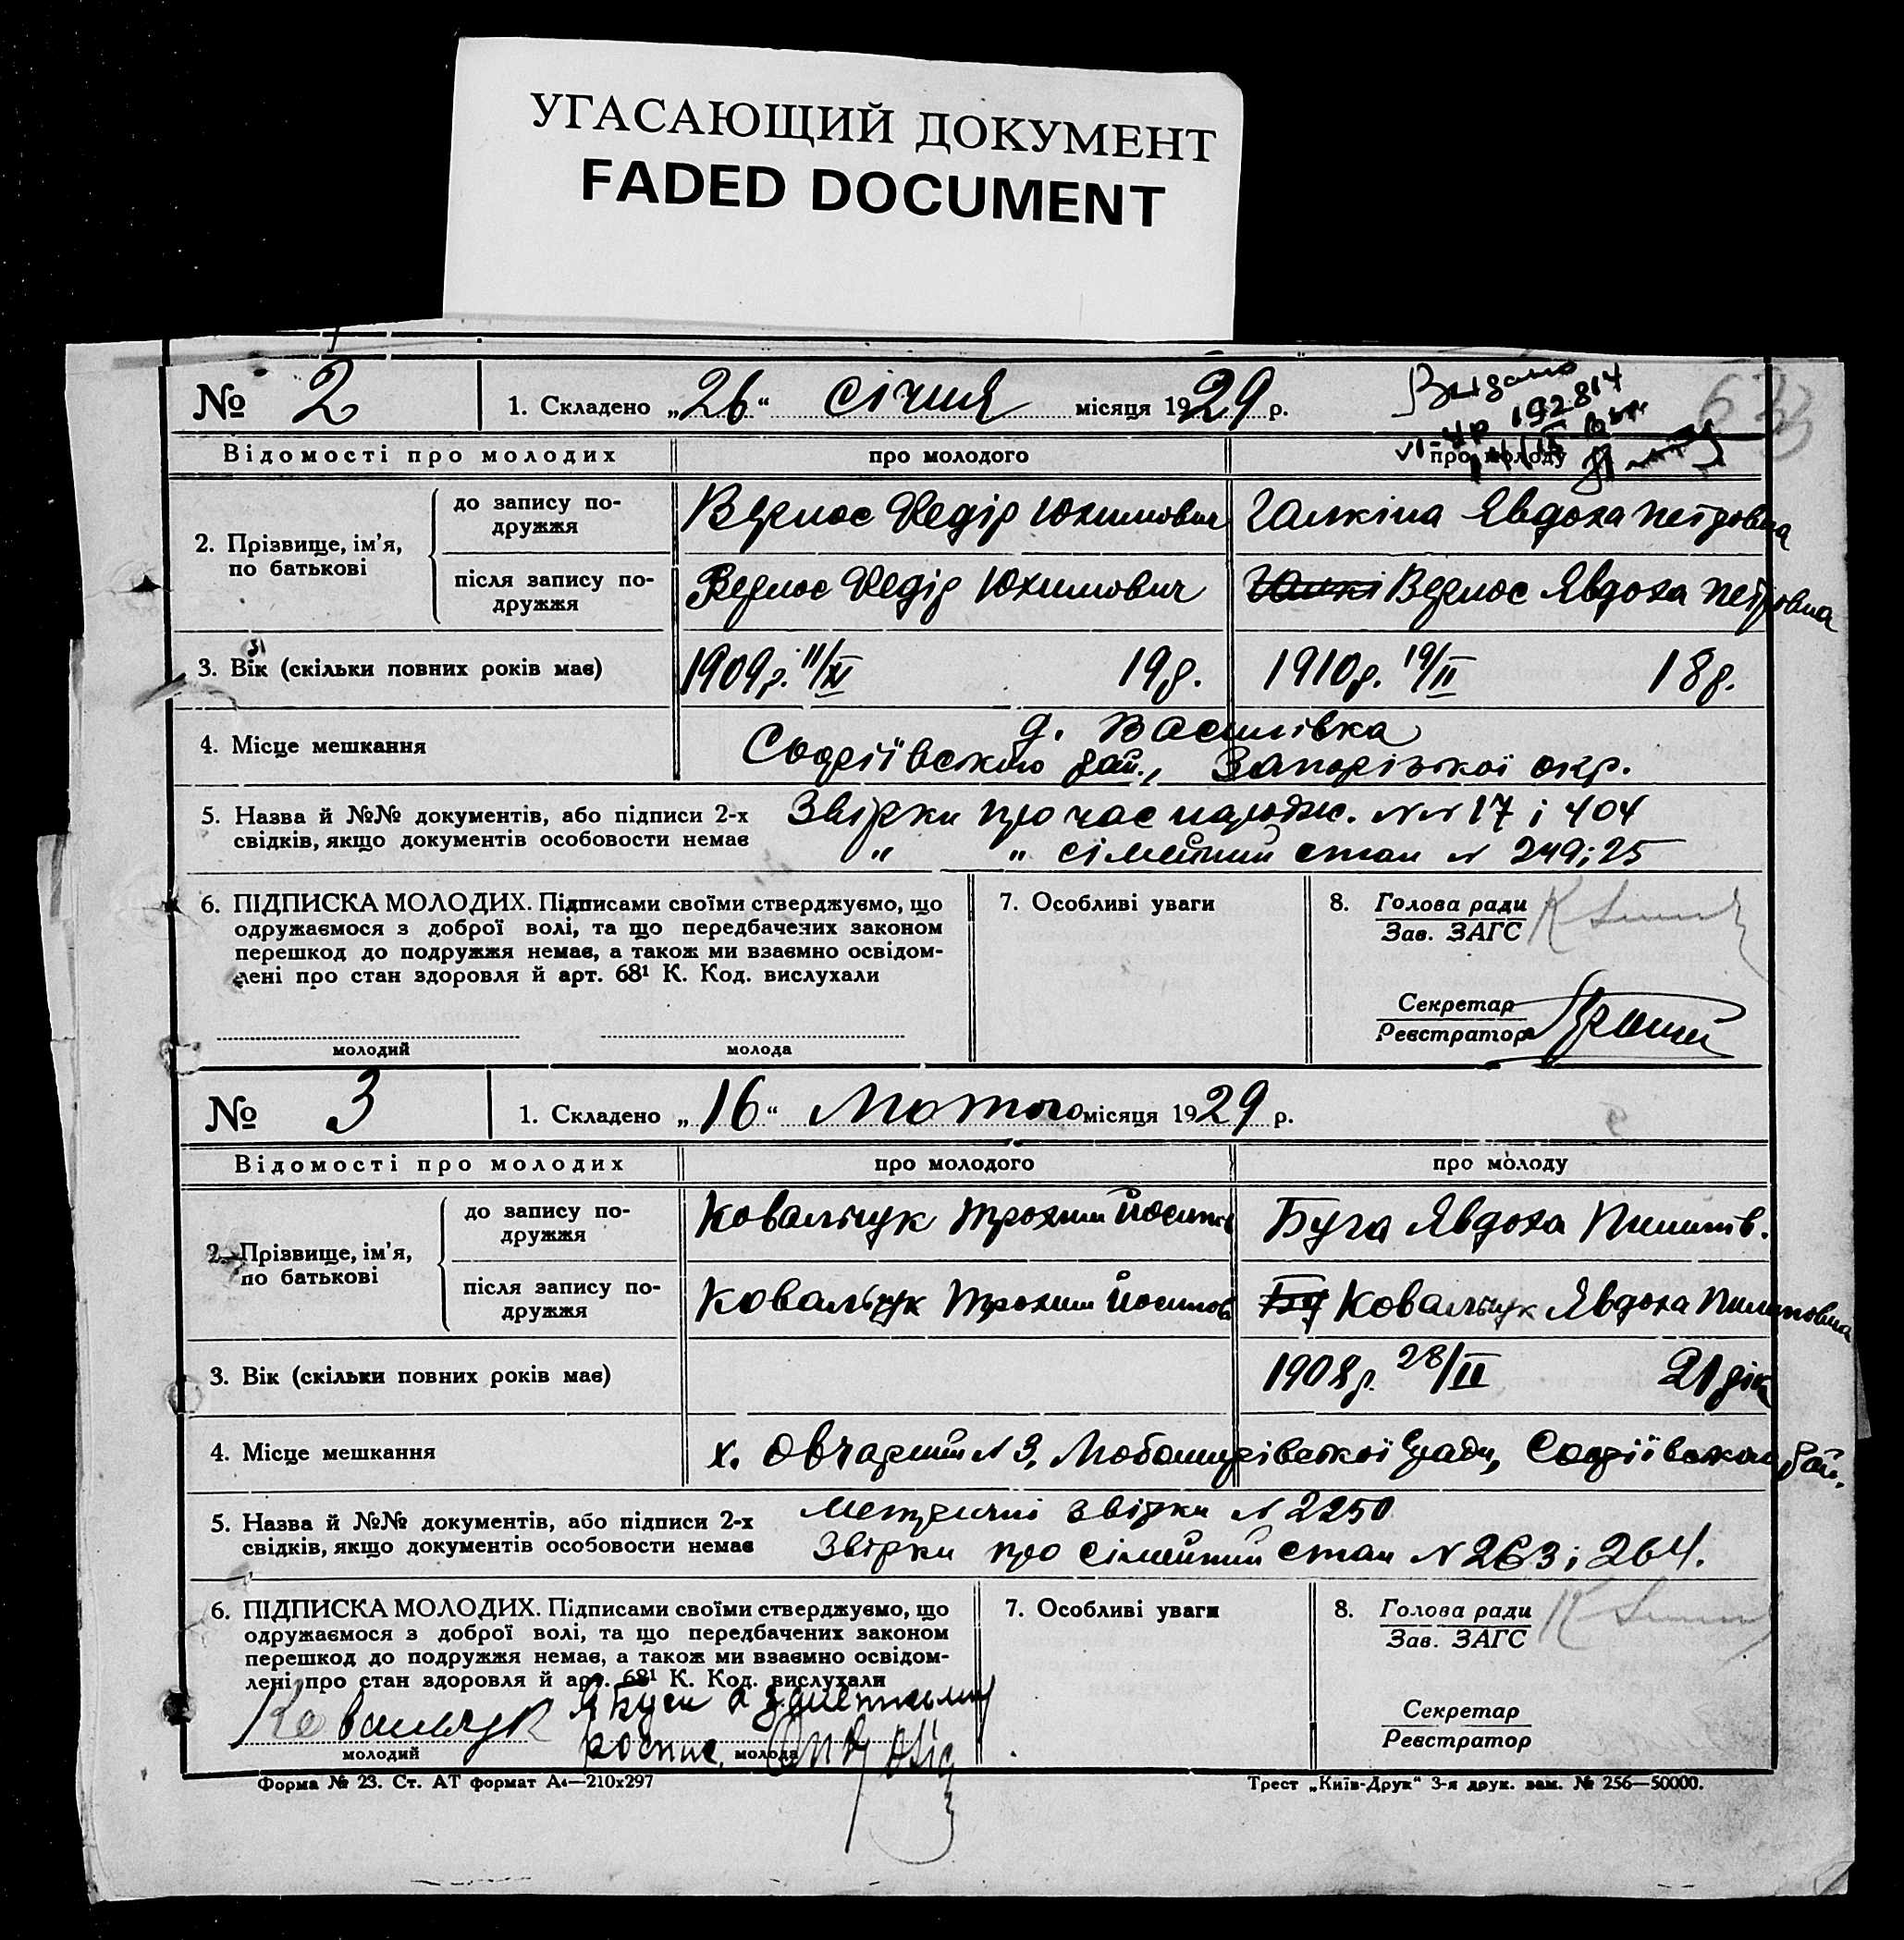 УГАСАЮЩИЙ ДОКУМЕНТ
FADED DOCUMENT
№ 2
1. Складено „26“ січня місяця 1929 р.
Видано
192814
Відомості про молодих
про молодого
про молоду
2. Прізвище, ім'я, по батькові
до запису подружжя
Федір Юхимович
Галкіна Явдоха Петровна
після запису подружжя
Федір Юхимович
Явдоха Петровна
3. Вік (скільки повних років має)
1909 р. 11/XI 19 р.
1910 р. 19/II 18 р.
4. Місце мешкання
д. Василівка
Софіївського рай., Запорізької окр.
5. Назва й №№ документів, або підписи 2-х
свідків, якщо документів особовости немає
Звірки про час народж. №№ 17 і 404
„ „ сімейний стан № 249 і 25
6. ПІДПИСКА МОЛОДИХ. Підписами своїми стверджуємо, що
одружаємося з доброї волі, та що передбачених законом
перешкод до подружжя немає, а також ми взаємно освідом-
лені про стан здоровля й арт. 68¹ К. Код. вислухали
молодий
молода
7. Особливі уваги
8. Голова ради
Зав. ЗАГС
Секретар
Реєстратор
№ 3
1. Складено „16“ Лютого місяця 1929 р.
Відомості про молодих
про молодого
про молоду
2. Прізвище, ім'я, по батькові
до запису подружжя
Ковальчук Трохим Йосипов
Буга Явдоха Пилипів.
після запису подружжя
Ковальчук Трохим Йосипов
Бу Ковальчук Явдоха Пилиповна
3. Вік (скільки повних років має)
1908 р. 28/II 21 рік
4. Місце мешкання
х. Овчарний № 3, ради, Софіївського рай.
5. Назва й №№ документів, або підписи 2-х
свідків, якщо документів особовости немає
Метричні звірки № 2250
Звірки про сімейний стан № 263 і 264.
6. ПІДПИСКА МОЛОДИХ. Підписами своїми стверджуємо, що
одружаємося з доброї волі, та що передбачених законом
перешкод до подружжя немає, а також ми взаємно освідом-
лені про стан здоровля й арт. 68¹ К. Код. вислухали
Ковальчук
молодий
молода
7. Особливі уваги
8. Голова ради
Зав. ЗАГС
Секретар
Реєстратор
Форма № 23. Ст. АТ формат А₄—210х297
Трест „Київ-Друк“ 3-я друк. зам. № 256—50000.